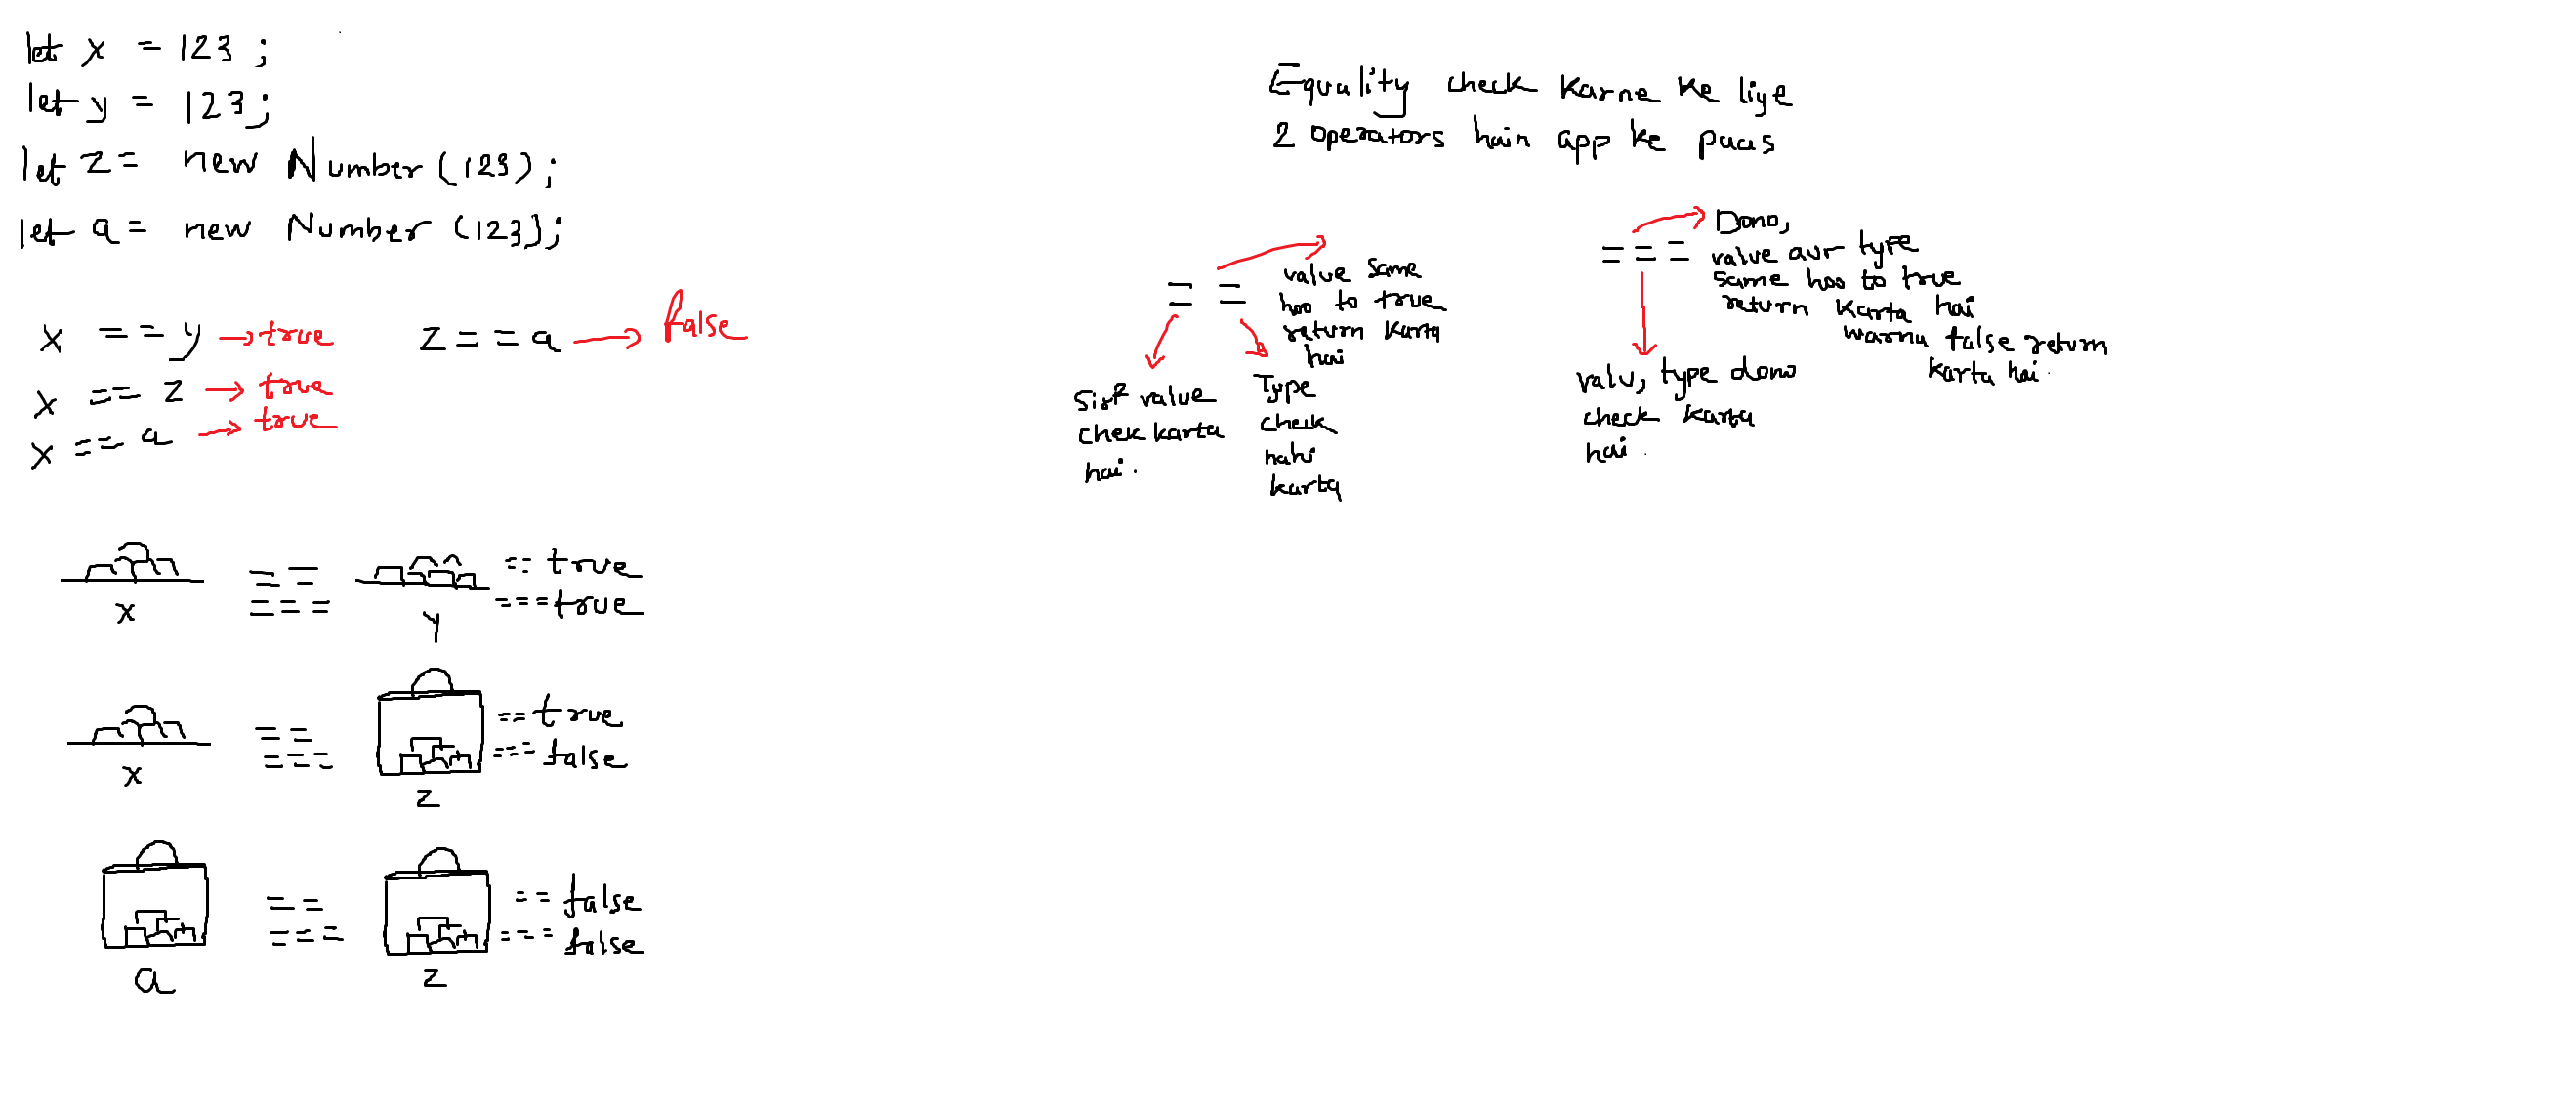 let x = 123 ;
let y = 123;
let z = new Number (123);
let a = new Number (123);
x == y → true
x == z → true
x == a → true
z == a → false
x
==
===
y
== true
=== true
x
==
===
z
== true
=== false
a
==
===
z
== false
=== false
Equality check karne ke liye
2 operators hain app ke paas
==
value same
hoo to true
return karta
hai
Sirf value
chek karta
hai.
Type
check
nahi
karta
===
Dono,
value aur type
same hoo to true
return karta hai
warna false return
karta hai.
valu, type dono
check karta
hai.